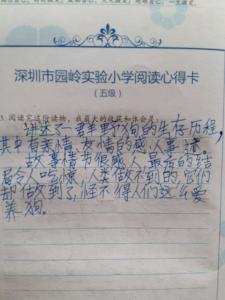 深圳市园岭实验小学阅读心得卡
(五级)
3. 阅读完这份读物，我最大的收获和体会是：
讲述了一群野狗的生存历程，
其中有亲情、友情的感人事迹。
故事情节很感人，最后的结
局令人吃惊，人类做不到的，它们
却做到了，怪不得人们这么爱
养狗。